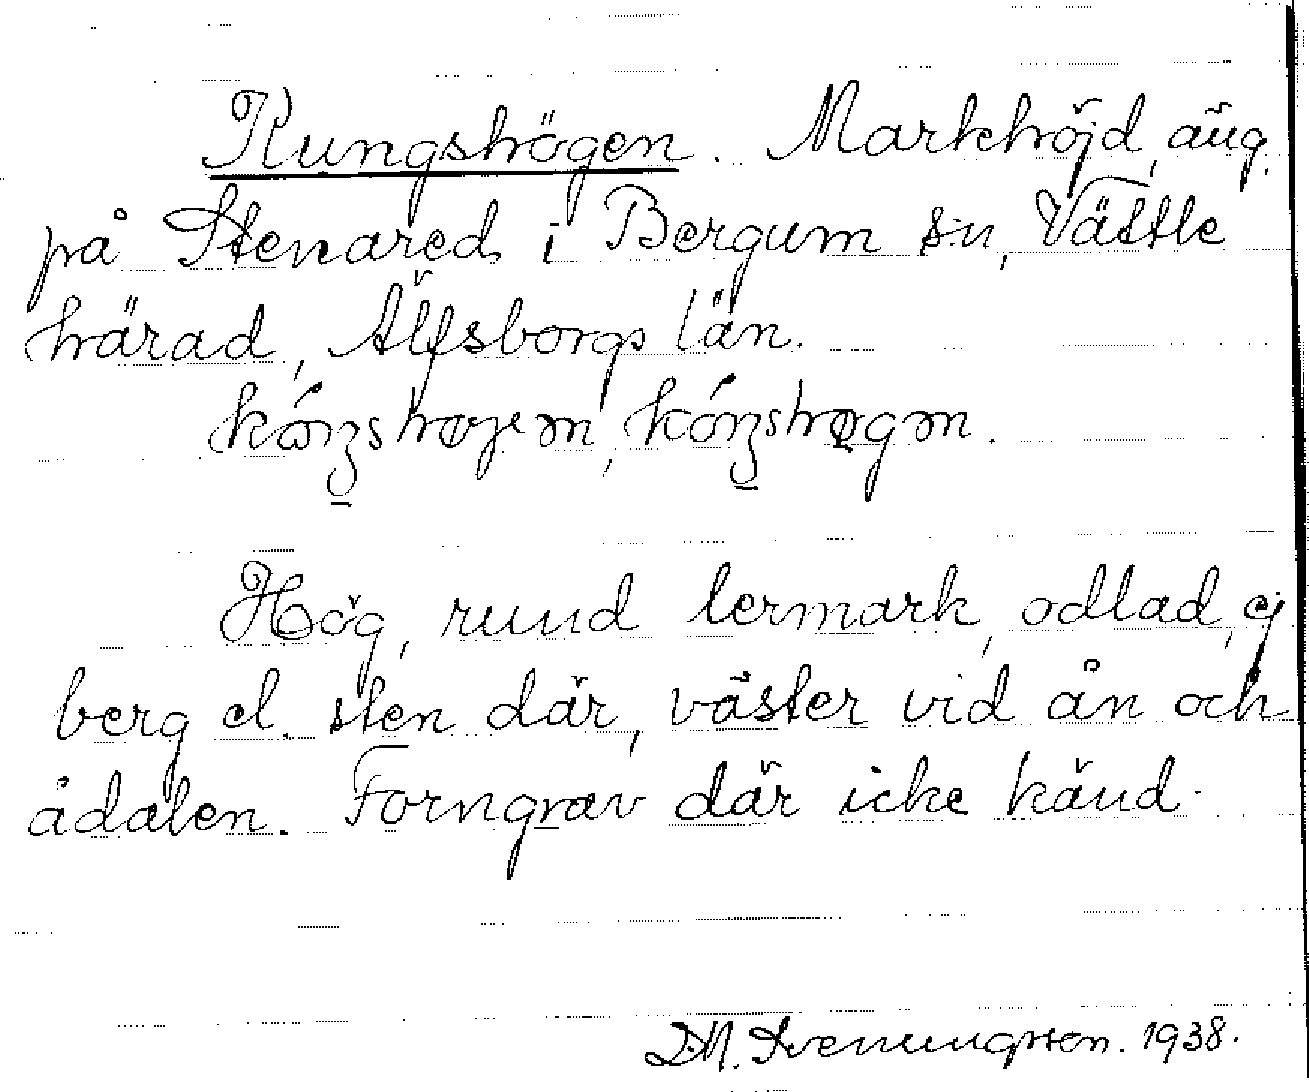 Kungshögen. Markhöjd, äng.
på Stenared i Bergum sn, Vättle
härad, Älfsborgs län.
Hög, rund lermark, odlad, ej
berg el. sten där, väster vid ån och
ådalen. Forngrav där icke känd.
D.M. Sveningsson. 1938.